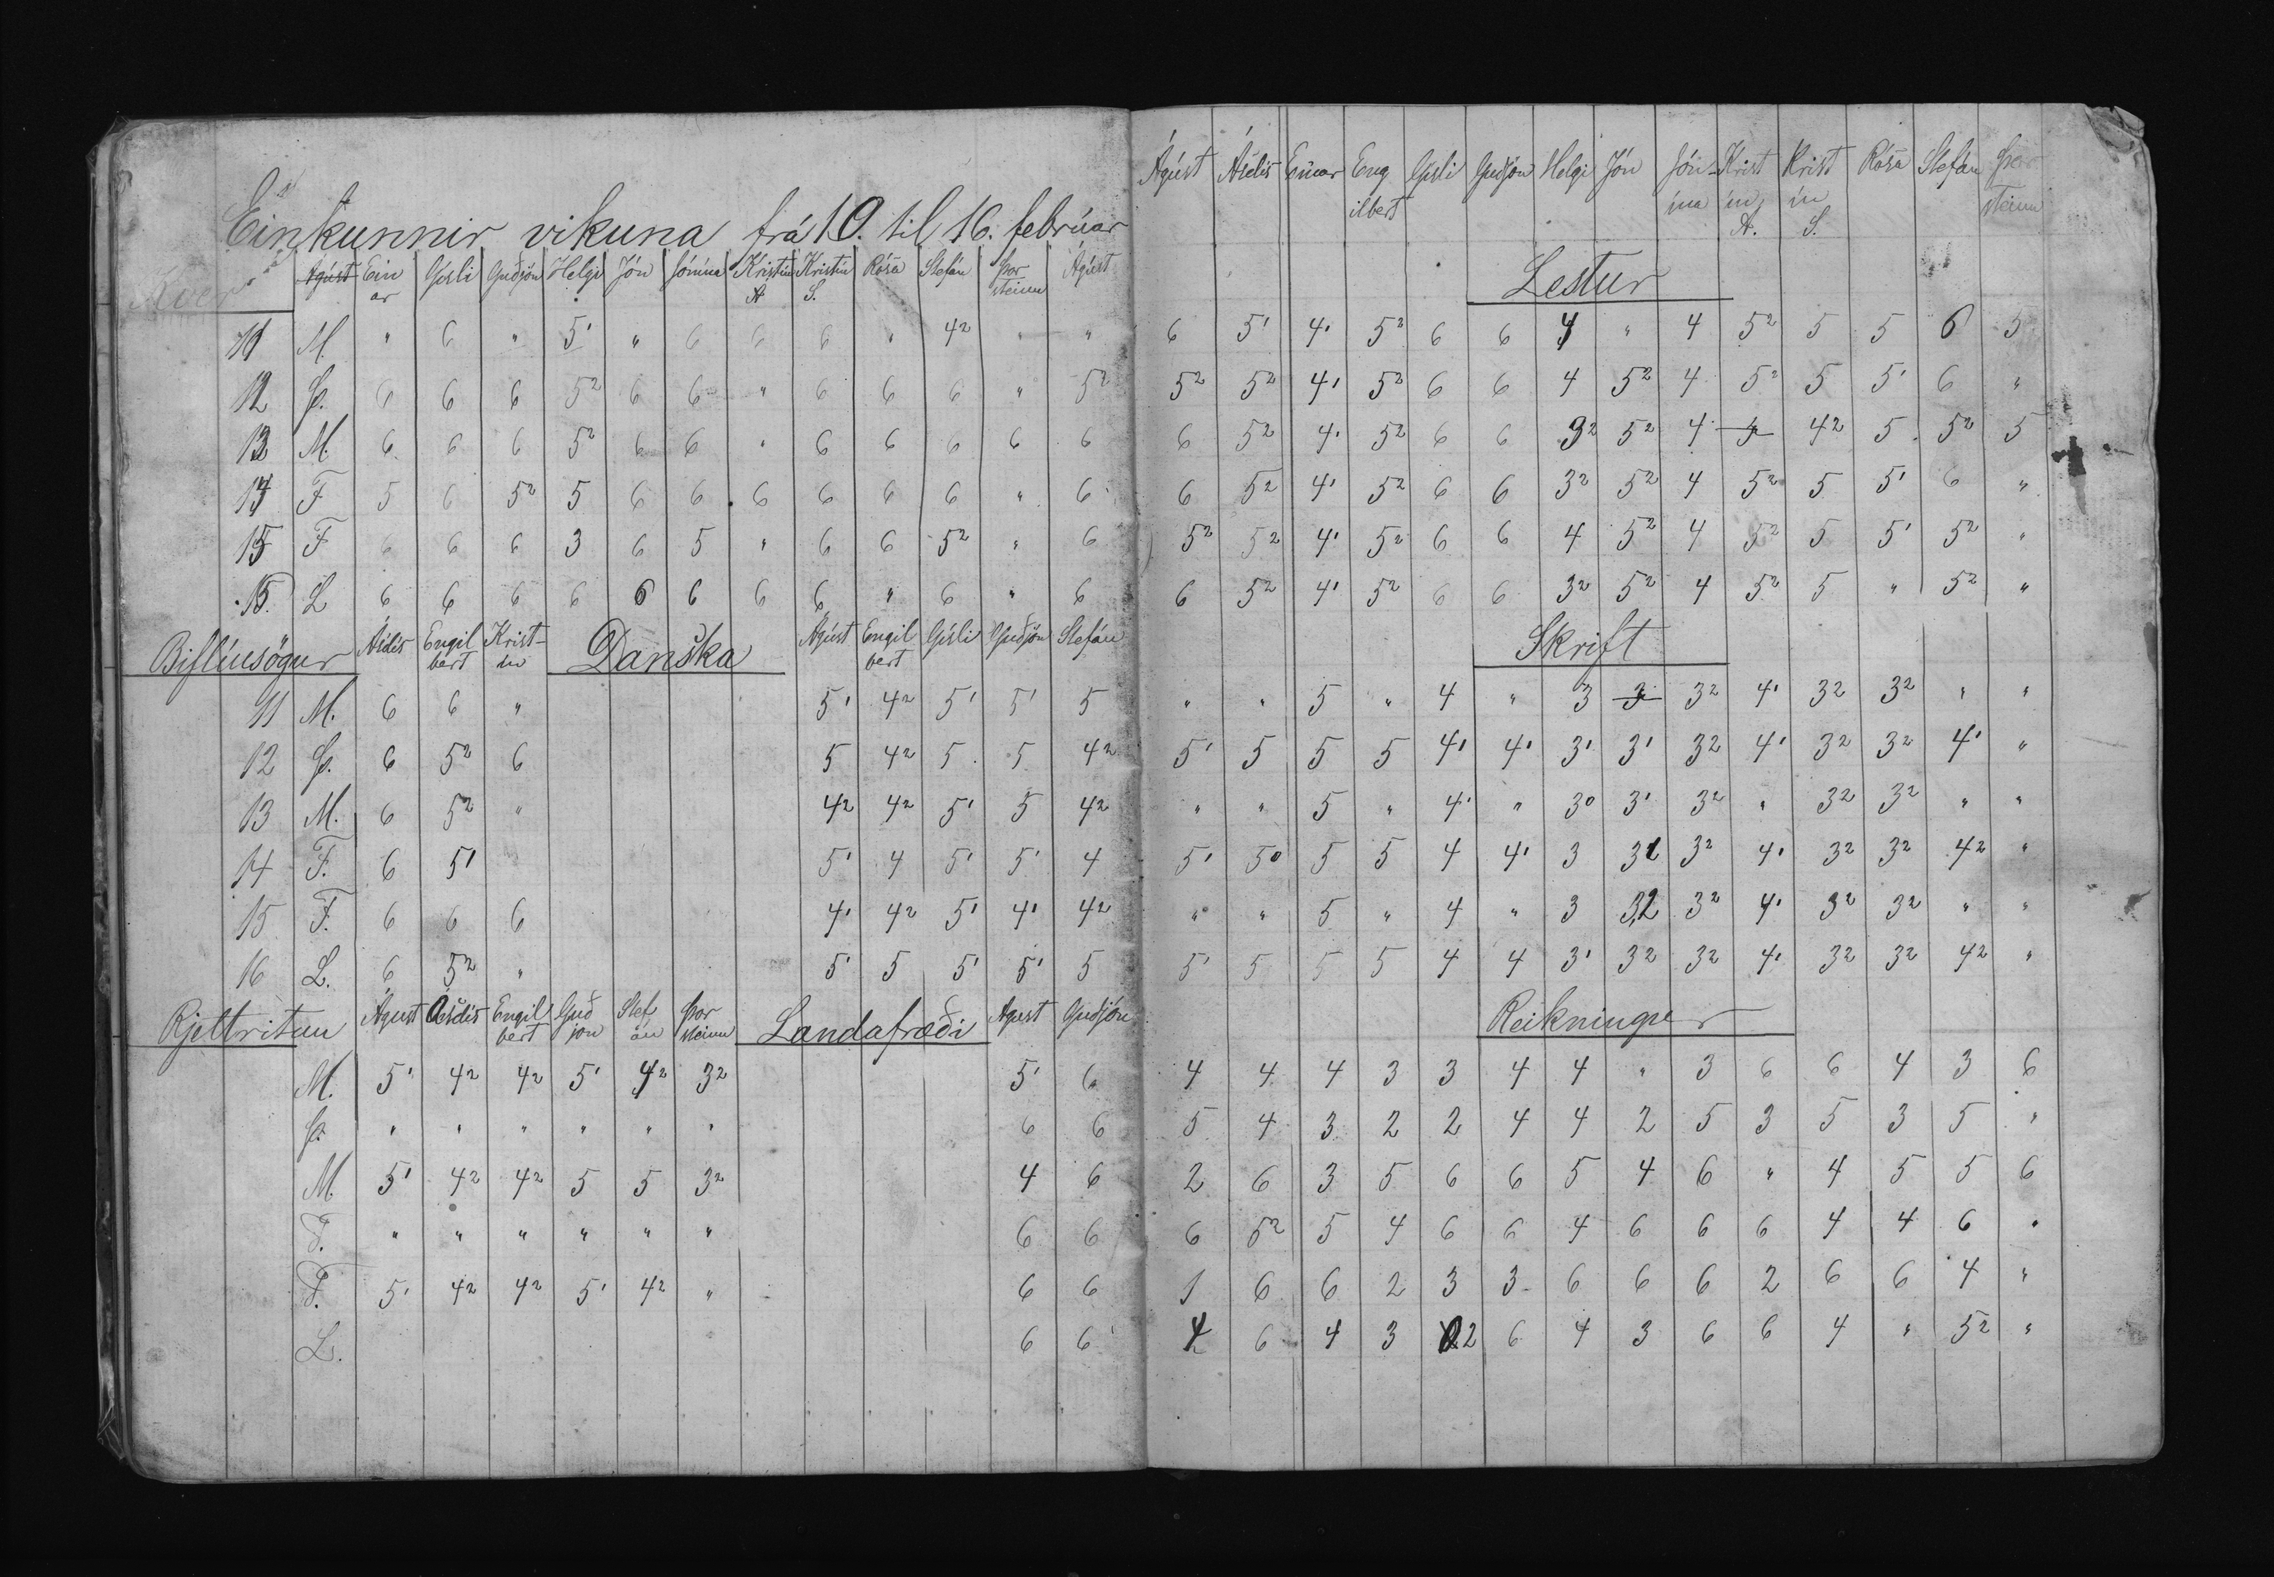 Einkunnir vikuna frá 10. til 16. febrúar
Kver Ágúst Einar Gísli Guðjón Helgi Jón Jónína Kristín A Kristín S. Rósa Stefán Þorsteinn Ágúst
11 M. " 6 " 5¹ " 6 6 6 " 4² " "
12 Þ. 6 6 6 5² 6 6 " 6 6 6 " 5²
13 M. 6 6 6 5² 6 6 " 6 6 6 6 6
14 F 5 6 5² 5 6 6 6 6 6 6 " 6
15 F 6 6 6 3 6 5 " 6 6 5² " 6
15. L 6 6 6 6 6 6 6 6 " 6 " 6
Biflíusögur Ásdís Engilbert Krist-ín Danska Ágúst Engilbert Gísli Guðjón Stefán
11 M. 6 6 " 5¹ 4² 5¹ 5¹ 5
12 Þ. 6 5² 6 5 4² 5 5 4²
13 M. 6 5² " 4² 4² 5¹ 5 4²
14 F. 6 5¹ 5¹ 4 5¹ 5¹ 4
15 F. 6 6 6 4¹ 4² 5¹ 4¹ 4²
16 L. 6 5² " 5¹ 5 5¹ 5¹ 5
Rjettritun Ágúst Ásdís Engilbert Guðjón Stefán Þorsteinn Landafræði Agust Guðjón
M. 5¹ 4² 4² 5¹ 4² 3² 5¹ 6
Þ. " " " " " " 6 6
M. 5¹ 4² 4² 5 5 3² 4 6
F. " " " " " " 6 6
F. 5¹ 4² 4² 5¹ 4² " 6 6
L. 6 6
Ágúst Ásdís Einar Engilbert Gísli Guðjón Helgi Jón Jón-ína Kristín A. Kristín S. Rósa Stefán Þorsteinn
Lestur
6 5¹ 4¹ 5² 6 6 4 " 4 5² 5 5 6 5
5² 5² 4¹ 5² 6 6 4 5² 4 5² 5 5¹ 6 "
6 5² 4¹ 5² 6 6 3² 5² 4 4² 5 5² 5
6 5² 4¹ 5² 6 6 3² 5² 4 5² 5 5¹ 6 "
5² 5² 4¹ 5² 6 6 4 5² 4 5² 5 5¹ 5² "
6 5² 4¹ 5² 6 6 3² 5² 4 5² 5 " 5² "
Skrift
" " 5 " 4 " 3 3 3² 4¹ 3² 3² " "
5¹ 5 5 5 4¹ 4¹ 3¹ 3¹ 3² 4¹ 3² 3² 4¹ "
" " 5 " 4¹ " 3⁰ 3¹ 3² " 3² 3² " "
5¹ 5⁰ 5 5 4 4¹ 3 3² 4¹ 3² 3² 4² "
" " 5 " 4 " 3 3,2 3² 4¹ 3² 3² " "
5¹ 5 5 5 4 4 3¹ 3² 3² 4¹ 3² 3² 4² "
Reikningur
4 4 4 3 3 4 4 " 3 6 6 4 3 6
5 4 3 2 2 4 4 2 5 3 5 3 5 "
2 6 3 5 6 6 5 4 6 " 4 5 5 6
6 5² 5 4 6 6 4 6 6 6 4 4 6 "
1 6 6 2 3 3 6 6 6 2 6 6 4 "
4 6 4 3 2 6 4 3 6 6 4 " 5² "